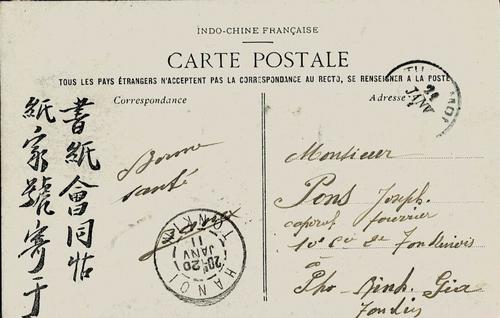 INDO-CHINE FRANÇAISE
CARTE POSTALE
TOUS LES PAYS ÉTRANGERS N'ACCEPTENT PAS LA CORRESPONDANCE AU RECTO, SE RENSEIGNER A LA POSTE
Correspondance
Adresse
書紙會同帖
紙家號寄于
Bonne
santé
HANOI
TONKIN
20
JANV
11
JANV
Monsieur
Pons Joseph
caporal fourrier
10e Cie de
Pho-Binh-Gia